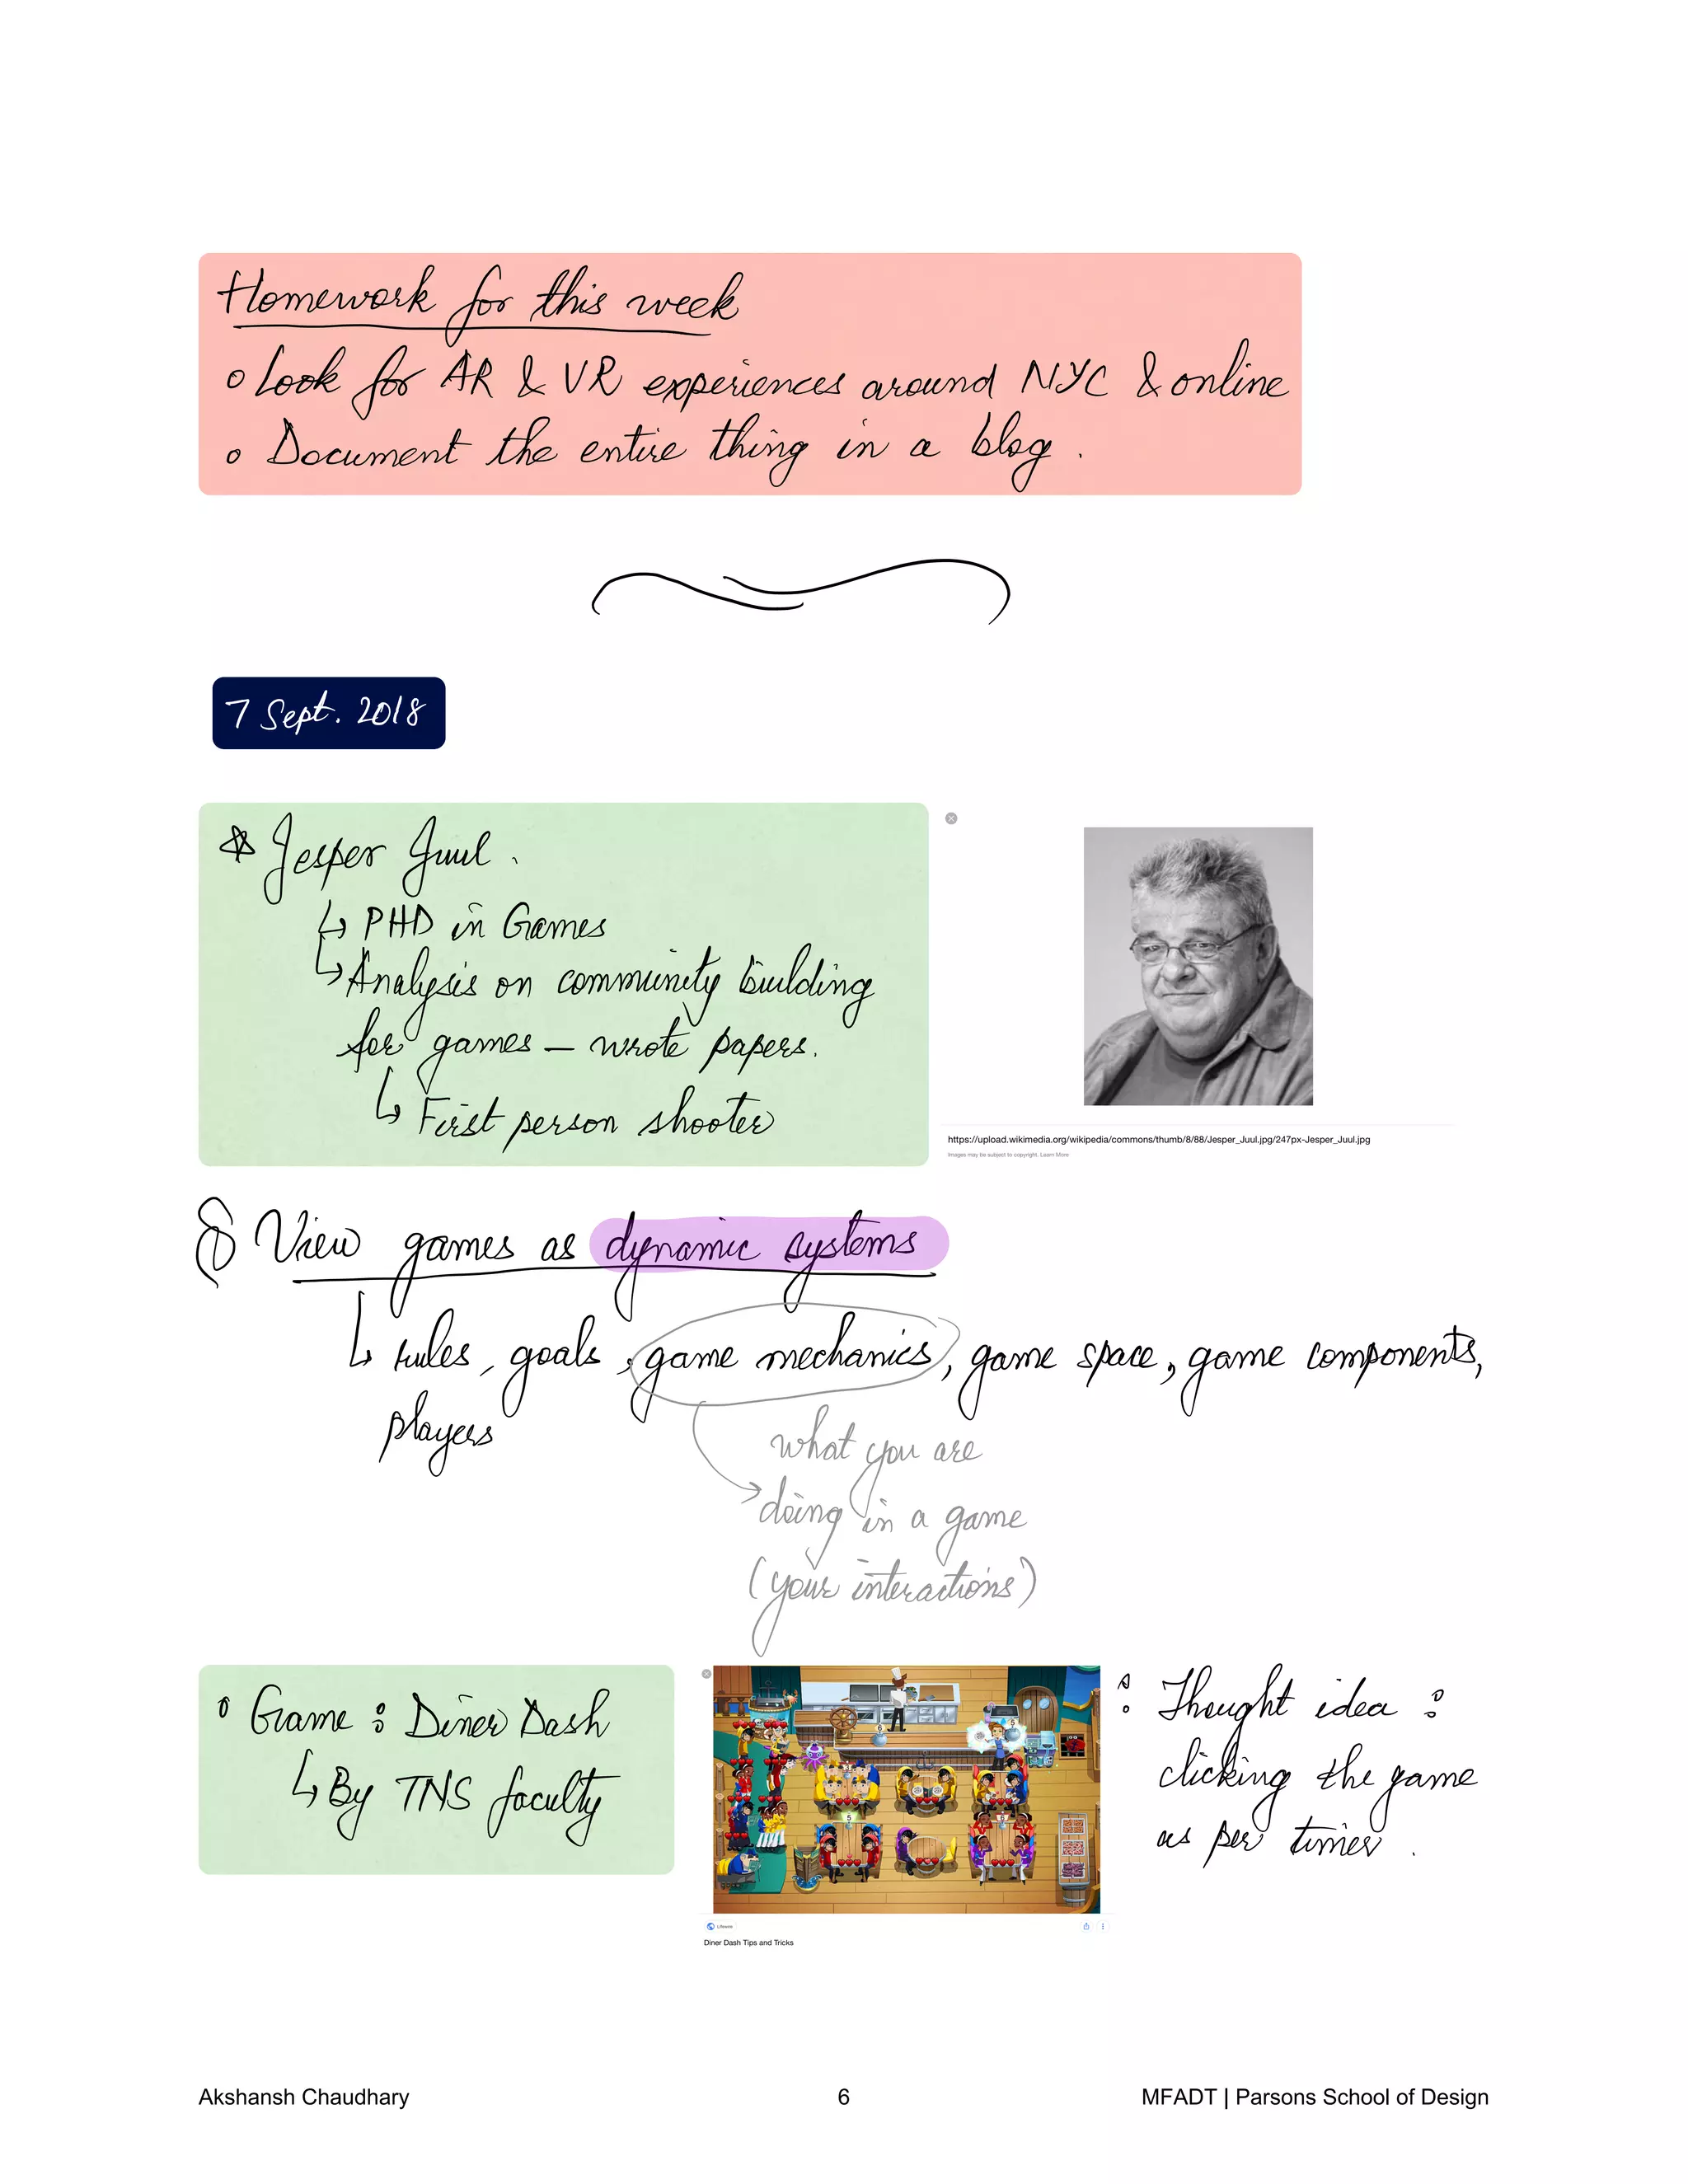 Homework for this week
o Look for AR & VR experiences around NYC & online
o Document the entire thing in a blog.
7 Sept. 2018
Jesper Juul.
↳ PHD in Games
↳ Analysis on community building
for games – wrote papers.
↳ First person shooter
https://upload.wikimedia.org/wikipedia/commons/thumb/8/88/Jesper_Juul.jpg/247px-Jesper_Juul.jpg
Images may be subject to copyright. Learn More
View games as dynamic systems
↳ rules, goals, game mechanics, game space, game components,
players
what you are
doing in a game
(your interactions)
Game : Diner Dash
↳ By TNS faculty
Thought idea :
clicking the game
as per timer.
5
5
Lifewire
Diner Dash Tips and Tricks
Akshansh Chaudhary 6 MFADT | Parsons School of Design